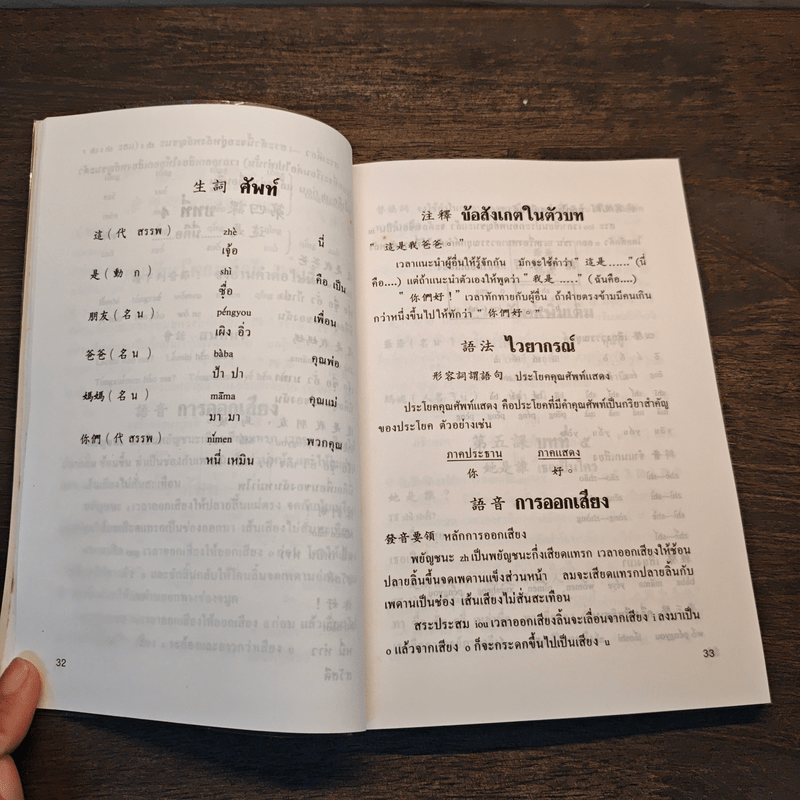 生詞 ศัพท์
這 ( 代 สรรพ ) zhè นี่
เจ้อ
是 ( 動 ก ) shì คือ เป็น
ชื่อ
朋友 ( 名 น ) péngyou เพื่อน
เผิง อิ่ว
爸爸 ( 名 น ) bàba คุณพ่อ
ป้า ปา
媽媽 ( 名 น ) māma คุณแม่
มา มา
你們 ( 代 สรรพ ) nǐmen พวกคุณ
หนี่ เหมิน
32
注釋 ข้อสังเกตในตัวบท
" 這是我爸爸。"
เวลาแนะนำผู้อื่นให้รู้จักกัน มักจะใช้คำว่า " 這是 ......" (นี่
คือ....) แต่ถ้าแนะนำตัวเองให้พูดว่า " 我是 ....." ( ฉันคือ....)
" 你們好！" เวลาทักทายกับผู้อื่น ถ้าฝ่ายตรงข้ามมีคนเกิน
กว่าหนึ่งขึ้นไปให้ทักว่า " 你們好。"
語法 ไวยากรณ์
形容詞謂語句 ประโยคคุณศัพท์แสดง
ประโยคคุณศัพท์แสดง คือประโยคที่มีคำคุณศัพท์เป็นกริยาสำคัญ
ของประโยค ตัวอย่างเช่น
ภาคประธาน ภาคแสดง
你 好。
語音 การออกเสียง
發音要領 หลักการออกเสียง
พยัญชนะ zh เป็นพยัญชนะกึ่งเสียดแทรก เวลาออกเสียงให้ช้อน
ปลายลิ้นขึ้นจดเพดานแข็งส่วนหน้า ลมจะเสียดแทรกปลายลิ้นกับ
เพดานเป็นช่อง เส้นเสียงไม่สั่นสะเทือน
สระประสม iou เวลาออกเสียงลิ้นจะเลื่อนจากเสียง i ลงมาเป็น
o แล้วจากเสียง o ก็จะกระดกขึ้นไปเป็นเสียง u
33